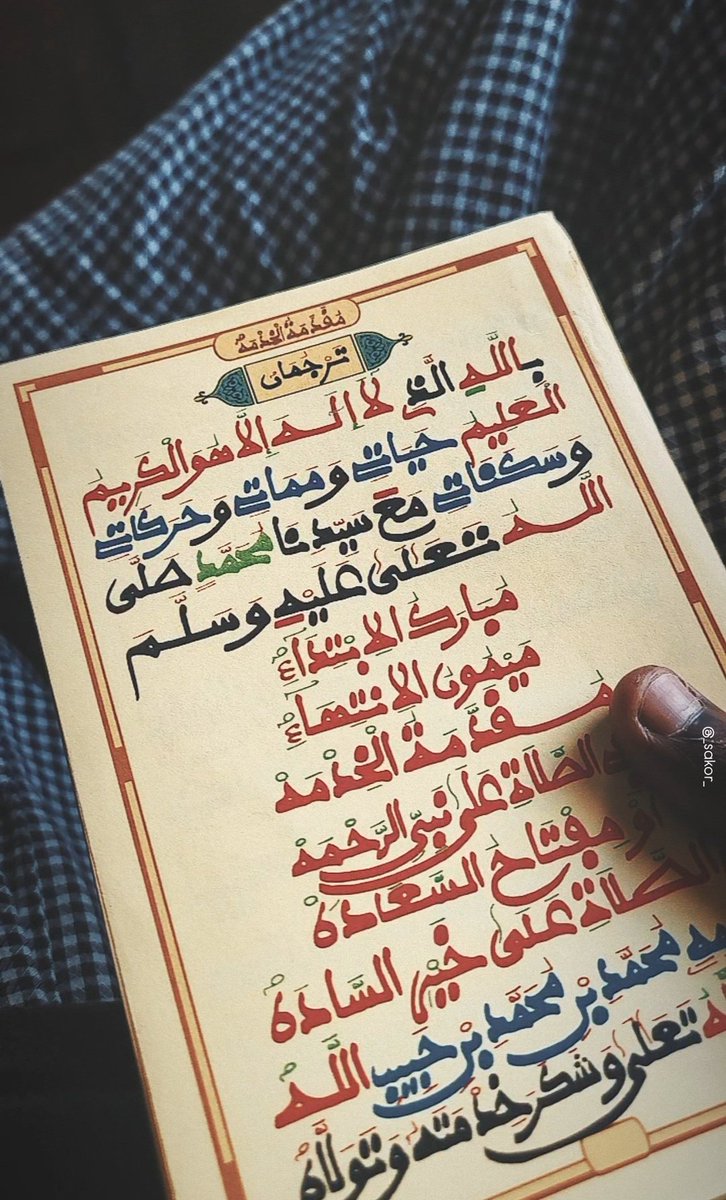 مُقَدِّمَةُ الْخِدْمَهْ
تَرْجُمَانُ
بِاللَّهِ الَّذِي لَا إِلَـهَ إِلَّا هُوَ الْكَرِيمِ
الْعَلِيمِ حَيَاتِي وَمَمَاتِي وَحَرَكَاتِي
وَسَكَنَاتِي مَعَ سَيِّدِنَا مُحَمَّدٍ صَلَّى
اللَّهُ تَعَلَى عَلَيْهِ وَسَلَّمَ
مُبَارَكُ الِابْتِدَاءِ
مَيْمُونُ الِانْتِهَاءِ
مُقَدِّمَةُ الْخِدْمَهْ
الصَّلَاةِ عَلَى نَبِيِّ الرَّحْمَهْ
أَوْ مِفْتَاحُ السَّعَادَهْ
الصَّلَاةِ عَلَى خَيْرِ السَّادَهْ
مُحَمَّدِ بْنِ مُحَمَّدِ بْنِ حَبِيبِ اللَّهْ
تَعَلَى وَشَكَرَ خِدْمَتَهُ وَتَوَلَّاهْ
@_sakor_